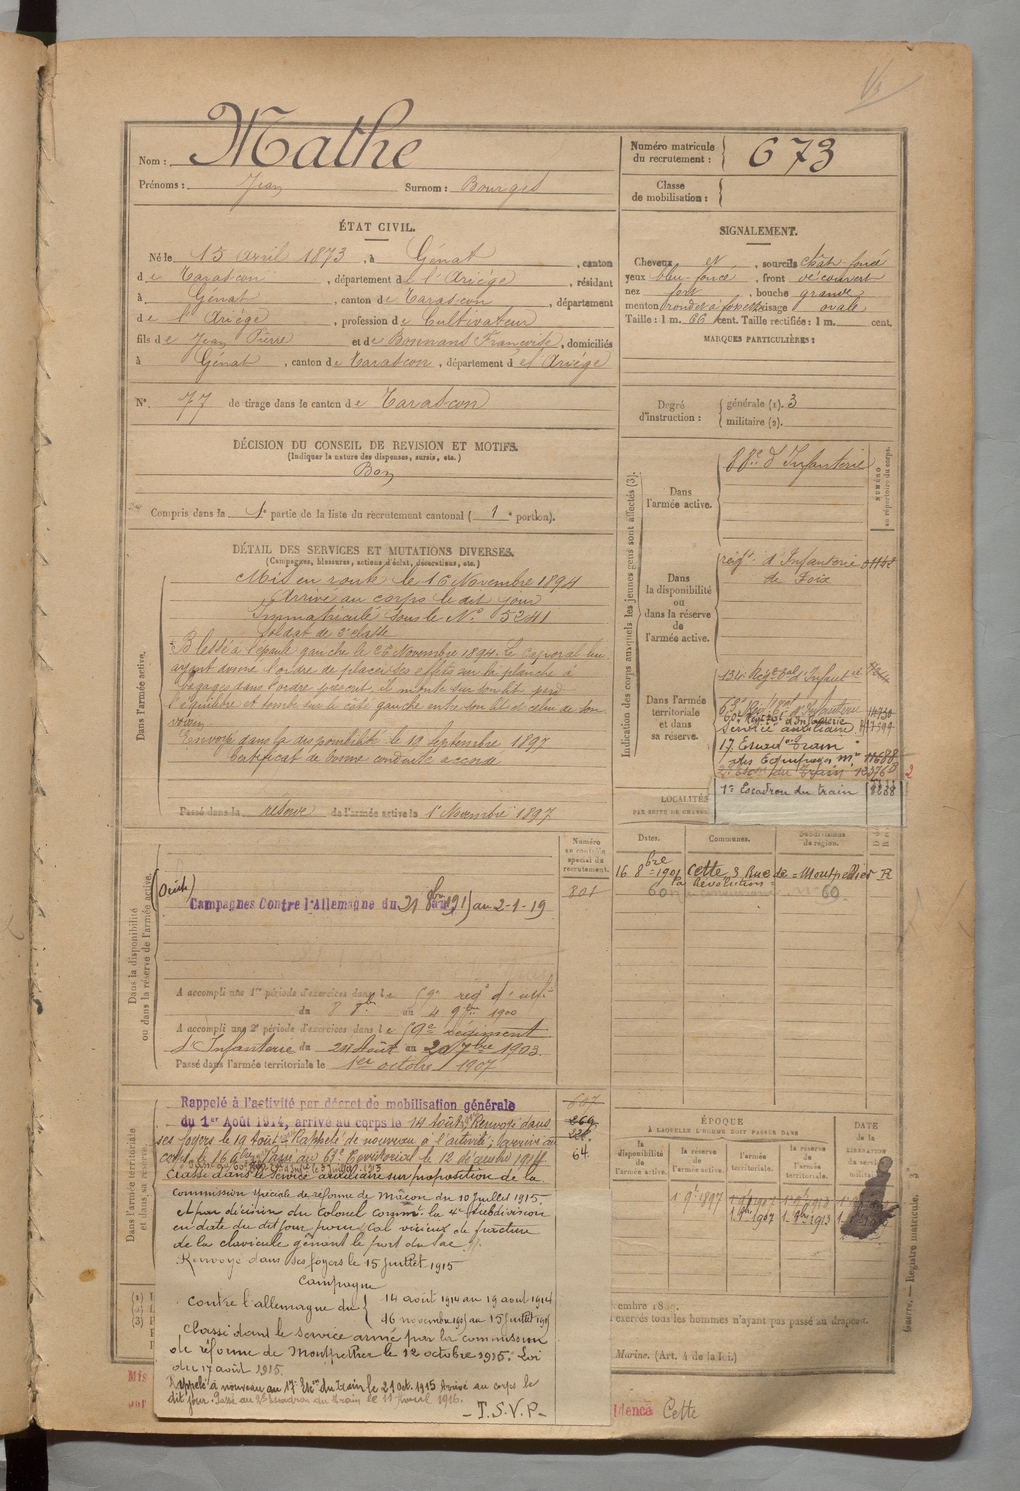 1/3
Nom : Mathe
Prénoms : Jean Surnom : Bourges
ÉTAT CIVIL.
Né le 15 Avril 1873, à Génat, canton
de Tarascon, département de l'Ariége, résidant
à Génat, canton de Tarascon, département
de l'Ariége, profession de Cultivateur
fils de Jean Pierre et de Bonnans Françoise, domiciliés
à Génat, canton de Tarascon, département de l'Ariége
N° 77 de tirage dans le canton de Tarascon
DÉCISION DU CONSEIL DE REVISION ET MOTIFS.
(Indiquer la nature des dispenses, sursis, etc.)
Bon
Compris dans la 1e partie de la liste du recrutement cantonal (1e portion).
DÉTAIL DES SERVICES ET MUTATIONS DIVERSES.
(Campagnes, blessures, actions d'éclat, décorations, etc.)
Dans l'armée active.
Mis en route le 16 Novembre 1894
Arrivé au corps le dit jour
Immatriculé sous le N° 5241
Soldat de 2e classe
Blessé à l'épaule gauche le 26 Novembre 1894. Le Caporal lui
ayant donné l'ordre de placer ses effets sur la planche à
bagages dans l'ordre prescrit, il monte sur son lit perd
l'équilibre et tombe sur le côté gauche entre son lit et celui de son
voisin
Envoyé dans la disponibilité le 19 Septembre 1897
Certificat de bonne conduite accordé
Passé dans la réserve de l'armée active le 1er Novembre 1897
Dans la disponibilité
ou dans la réserve de l'armée active.
Numéro
au contrôle
spécial du
recrutement.
801
Campagnes Contre l'Allemagne du 21 8bre 1915 au 2-1-19
A accompli une 1re période d'exercices dans le 59e régt d'infie
du 8 8bre au 4 9bre 1900
A accompli une 2e période d'exercices dans le 59e Régiment
d'Infanterie du 24 Août au 20 7bre 1903.
Passé dans l'armée territoriale le 1er octobre 1907
Dans l'armée territoriale
et dans sa réserve
64.
Rappelé à l'activité par décret de mobilisation générale
du 1er Août 1914, arrivé au corps le 14 Août. Renvoyé dans
ses foyers le 19 Août. Rappelé de nouveau à l'activité, arrivé au
corps le 16 9bre. Passé au 63e Territorial le 12 décembre 1914
Classé dans le Service auxiliaire sur proposition de la
commission spéciale de réforme de Mâcon du 10 Juillet 1915.
et par décision du Colonel commt la 4e subdivision
en date du dit jour pour "Cal vicieux de fracture
de la clavicule gênant le port du sac".
Renvoyé dans ses foyers le 15 Juillet 1915
Campagne
Contre l'allemagne du { 14 août 1914 au 19 août 1914
16 novembre 1914 au 15 Juillet 1915
Classé dans le service armé par la commission
de réforme de Montpellier le 12 octobre 1915. Loi
du 17 août 1915.
Rappelé à nouveau au 17e Etm du train le 21 Oct. 1915 Arrivé au corps le
dit jour. Passé au 2e escadron du train le 11 Avril 1916.
- T.S.V.P. -
Numéro matricule
du recrutement : 673
Classe
de mobilisation :
SIGNALEMENT.
Cheveux et, sourcils chât. foncé
yeux bleu foncé, front découvert
nez fort, bouche grande
menton rond et à fossette visage ovale
Taille : 1 m. 66 cent. Taille rectifiée : 1 m. cent.
MARQUES PARTICULIÈRES :
Degré
d'instruction :
générale (1). 3
militaire (2).
Indication des corps auxquels les jeunes gens sont affectés (3).
NUMÉRO
au répertoire du corps.
Dans
l'armée active.
88e d'Infanterie
Dans
la disponibilité
ou
dans la réserve
de
l'armée active.
régt d'Infanterie
de Foix
Dans l'armée
territoriale
et dans
sa réserve.
134e Regt tal d'Infanterie
63e Régt tal d'Infanterie
60e Régt tal d'Infanterie
Service auxiliaire
17 Escad. Train
des Equipages Mre
2e Escon du Train
1er Escadron du train
LOCALITÉS
Dates. Communes. Subdivisions
de région.
16 8bre 1901 Cette 3 Rue de la Révolution Montpellier R
ÉPOQUE
À LAQUELLE L'HOMME DOIT PASSER DANS
DATE
de la
LIBÉRATION
la
disponibilité
de l'armée
active.
la réserve
de l'armée
active.
l'armée
territoriale.
la réserve
de l'armée
territoriale.
1 9bre 1897 1 9bre 1907 1 9bre 1913
1 8bre 1907 1 8bre 1913
Guerre. — Registre matricule. 3
(1)
(2)
(3)
exercés tous les hommes n'ayant pas passé au drapeau.
Marine. (Art. 4 de la loi.)
Mis
Cette